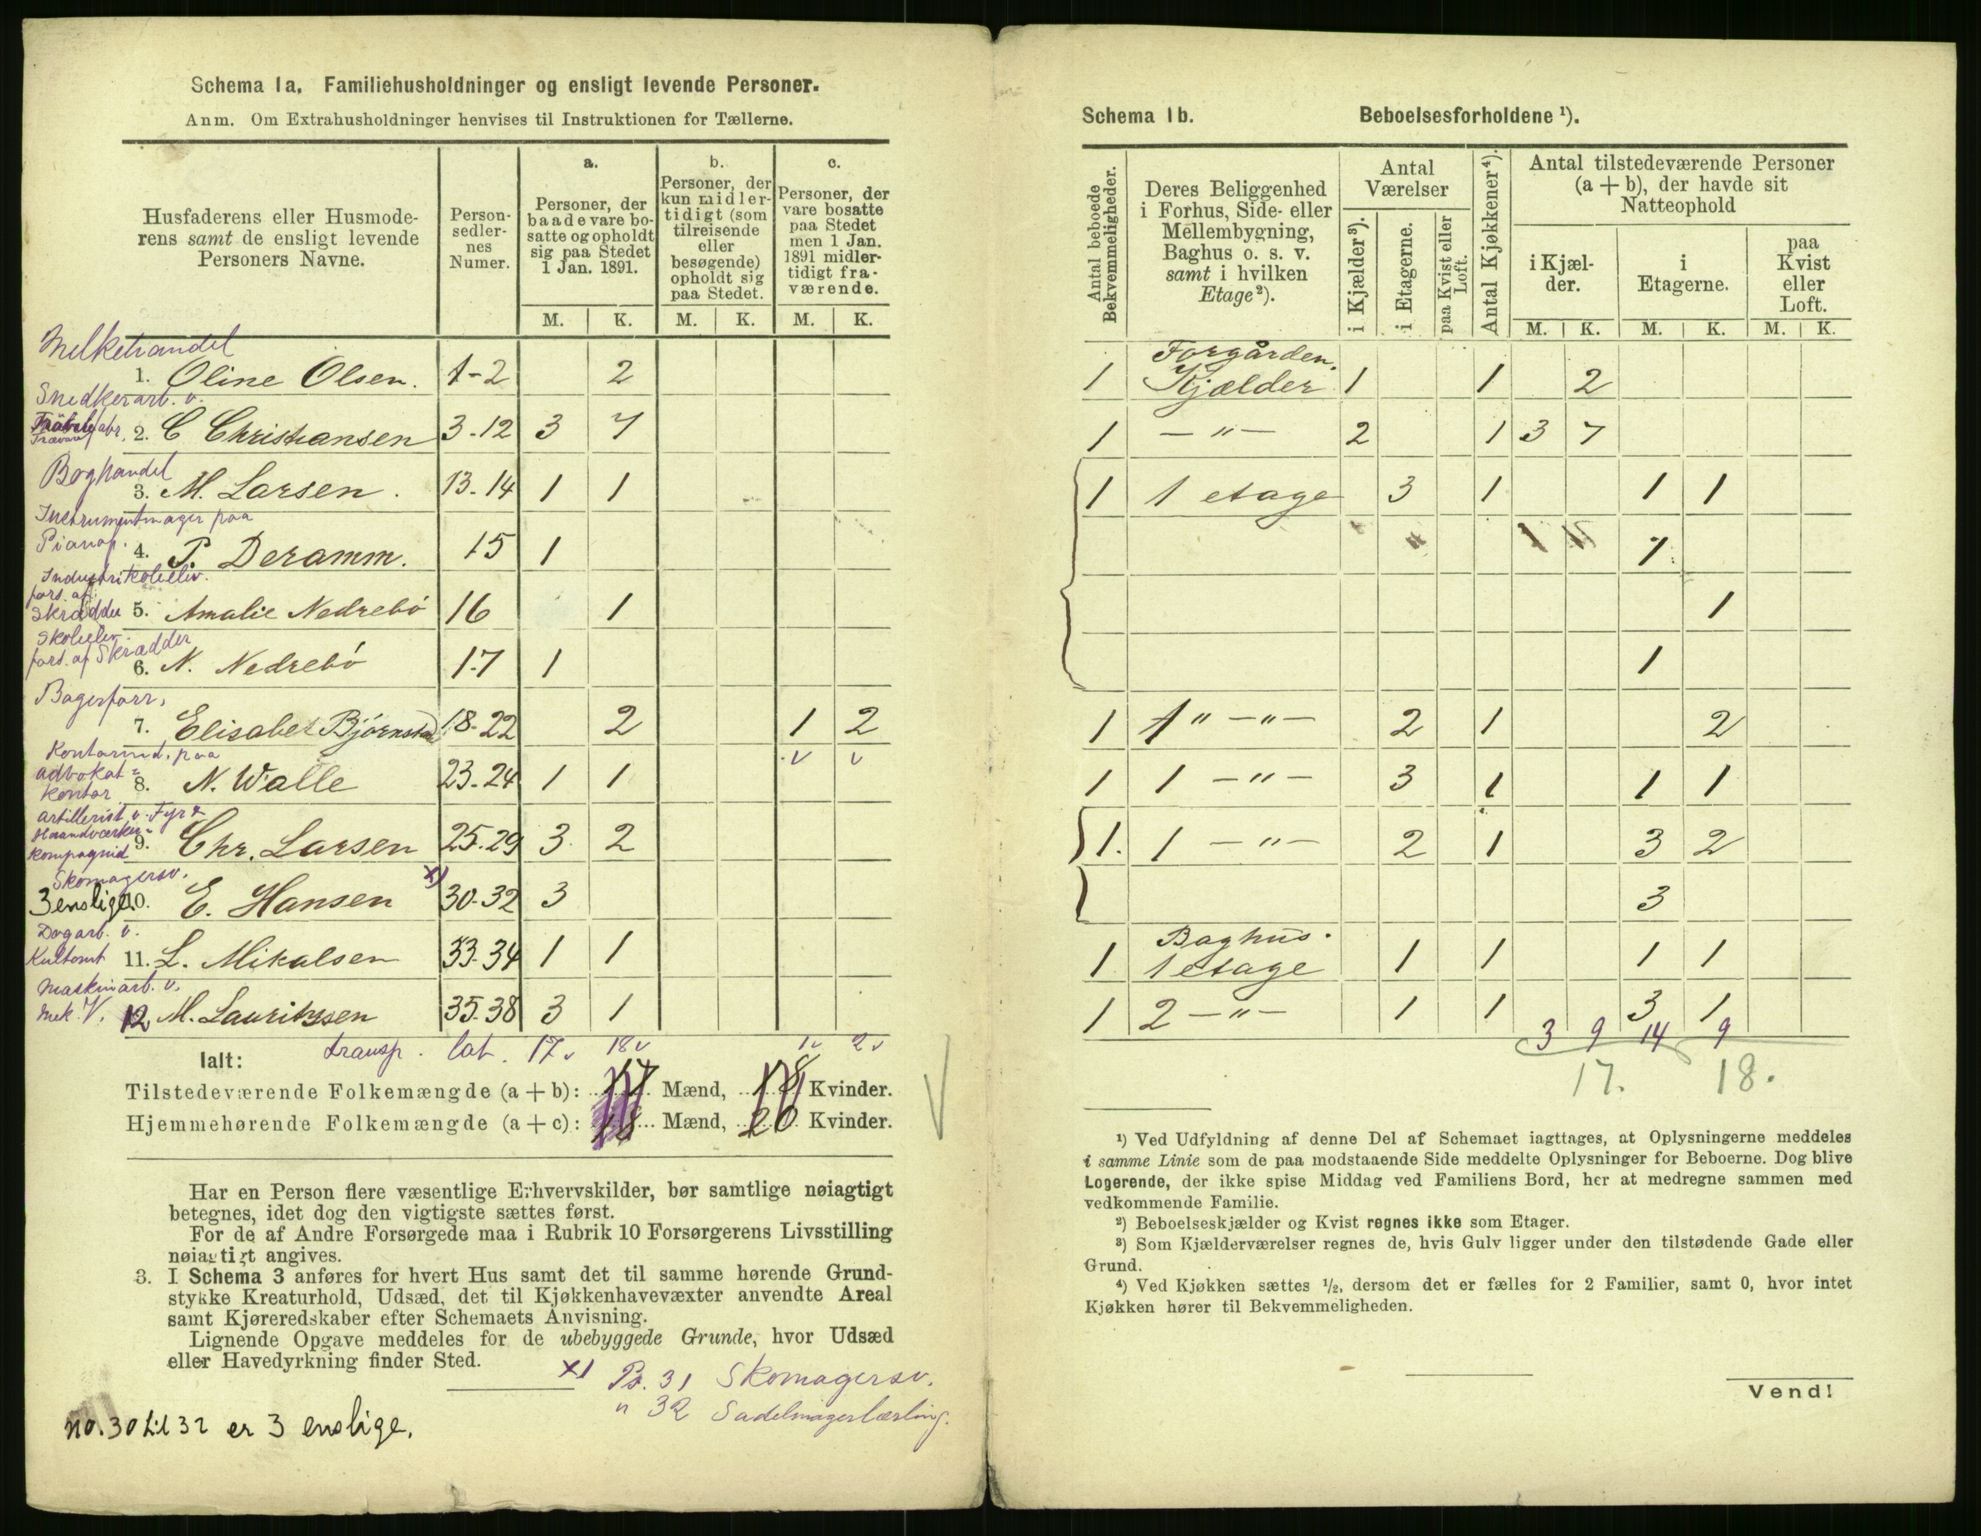 Schema 1a. Familiehusholdninger og ensligt levende Personer.
Anm. Om Extrahusholdninger henvises til Instruktionen for Tællerne.
Husfaderens eller Husmoderens samt de ensligt levende Personers Navne.
Personsedlernes Numer.
a.
Personer, der baade vare bosatte og opholdt sig paa Stedet 1 Jan. 1891.
b.
Personer, der kun midlertidigt (som tilreisende eller besøgende) opholdt sig paa Stedet.
c.
Personer, der vare bosatte paa Stedet men 1 Jan. 1891 midlertidigt fraværende.
M. K. M. K. M. K.
Melkehandel
1. Oline Olsen. 1-2 2
Snedkerarb. v.
2. C Christiansen 3-12 3 7
Boghandel
3. M. Larsen. 13-14 1 1
Instrumentmager paa
Pianof. 4. P. Deramm. 15 1
Industriskoleelev.
fors. af
Skrædder 5. Amalie Nedrebó 16 1
Skoleelev.
fors. af Skrædder
6. N. Nedrebó 17 1
Bagerforr.
7. Elisabet Bjørnstad 18-22 2 1 2
Kontorind. paa v v
advokat-
kontor 8. N. Walle 23-24 1 1
Artillerist v. Fyr &
Haandværker-
kompagnid 9. Chr. Larsen 25-29 3 2
Skomagersv. x)
3 enslige 10. E. Hansen 30-32 3
Dagarb. v.
11. L. Mikalsen 33-34 1 1
Maskinarb. v.
Mek. V. 12. M. Lauritzsen 35-38 3 1
transp. lat. 17v 18v 1v 2v
Ialt:
Tilstedeværende Folkemængde (a + b): 17 Mænd, 18 Kvinder.
Hjemmehørende Folkemængde (a + c): 18 Mænd, 20 Kvinder.
Har en Person flere væsentlige Erhvervskilder, bør samtlige nøiagtigt
betegnes, idet dog den vigtigste sættes først.
For de af Andre Forsørgede maa i Rubrik 10 Forsørgerens Livsstilling
nøiagtigt angives.
3. I Schema 3 anføres for hvert Hus samt det til samme hørende Grund-
stykke Kreaturhold, Udsæd, det til Kjøkkenhavevæxter anvendte Areal
samt Kjøreredskaber efter Schemaets Anvisning.
Lignende Opgave meddeles for de ubebyggede Grunde, hvor Udsæd
eller Havedyrkning finder Sted.
x) Ps. 31 Skomagersv.
" 32 Sadelmagerlærling.
no. 30 til 32 er 3 enslige.
Schema 1b. Beboelsesforholdene ¹).
Antal beboede Bekvemmeligheder.
Deres Beliggenhed i Forhus, Side- eller Mellembygning, Baghus o. s. v. samt i hvilken Etage ²).
Antal Værelser
i Kjælder ³).
i Etagerne.
paa Kvist eller Loft.
Antal Kjøkkener ⁴).
Antal tilstedeværende Personer (a + b), der havde sit Natteophold
i Kjælder.
i Etagerne.
paa Kvist eller Loft.
M. K. M. K. M. K.
Forgården.
1 Kjælder 1 1 2
1 — " — 2 1 3 7
1 1 etage 3 1 1 1
1
1
1
1 1 " — " — 2 1 2
1 1 — " — 3 1 1 1
1. 1 — " — 2 1 3 2
3
Baghus.
1 1 etage 1 1 1 1
1 2 — " — 1 1 3 1
3 9 14 9
17. 18.
¹) Ved Udfyldning af denne Del af Schemaet iagttages, at Oplysningerne meddeles
i samme Linie som de paa modstaaende Side meddelte Oplysninger for Beboerne. Dog blive
Logerende, der ikke spise Middag ved Familiens Bord, her at medregne sammen med
vedkommende Familie.
²) Beboelseskjælder og Kvist regnes ikke som Etager.
³) Som Kjælderværelser regnes de, hvis Gulv ligger under den tilstødende Gade eller
Grund.
⁴) Ved Kjøkken sættes ½, dersom det er fælles for 2 Familier, samt 0, hvor intet
Kjøkken hører til Bekvemmeligheden.
Vend!